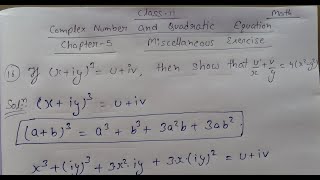 Class-11 Math
Complex Number and Quadratic Equation
Chapter-5 Miscellaneous Exercise
If (x+iy)³ = u+iv, then show that u/x + v/y = 4(x²-y²)
Solⁿ (x+iy)³ = u+iv
(a+b)³ = a³ + b³ + 3a²b + 3ab²
x³ + (iy)³ + 3x²·iy + 3x·(iy)² = u+iv